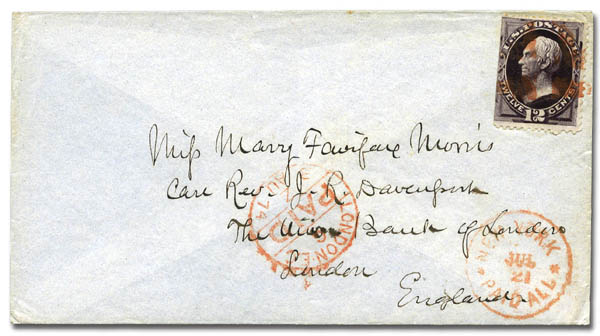 U.S. POSTAGE
TWELVE 12 CENTS
Miss Mary Fairfax Morris
Care Rev. J. R. Davenport
The Union Bank of London
London
England
LONDON E.C
PAID
NEW YORK
JUL
21
PAID ALL